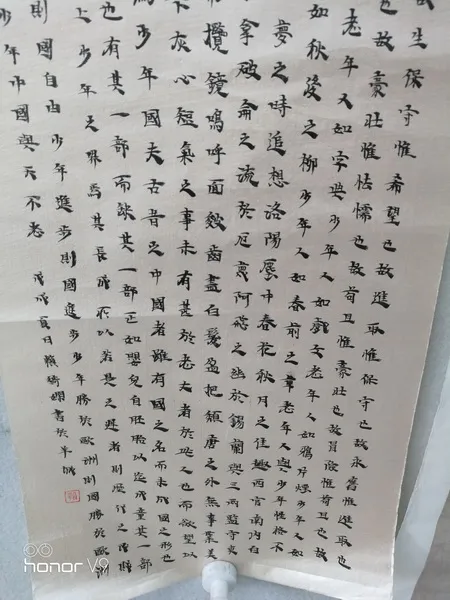 生保守惟希望也故進取惟保守也故永舊惟進取也
也故豪壯惟怯懦也故苟且惟豪壯也故冒險惟苟且也故
老年人如字典少年人如戲文老年人如鴉片煙少年人如
如秋後之柳少年人如春前之草老年人與少年性格不
夢之時追想洛陽塵中春花秋月之佳趣西宮南內白
拿破侖之流於厄蔑阿飛之幽於錫蘭與三兩監守吏
攬鏡嗚呼面皴齒盡白髮盈把頹唐之外無事業美
灰心短氣之事未有甚於老大者於此人也而欲望以
少年國夫古昔之中國者雖有國之名而未成國之形也
也有其一部而缺其一部正如嬰兒自胚胎以迄成童其一部
上少年之界焉其長成所以若是之遲者則歷代之
則國自由少年進步則國進步少年勝於歐洲則國勝於歐洲
少年中國與天不老
戊戌夏日賴 書於羊城
honor V9